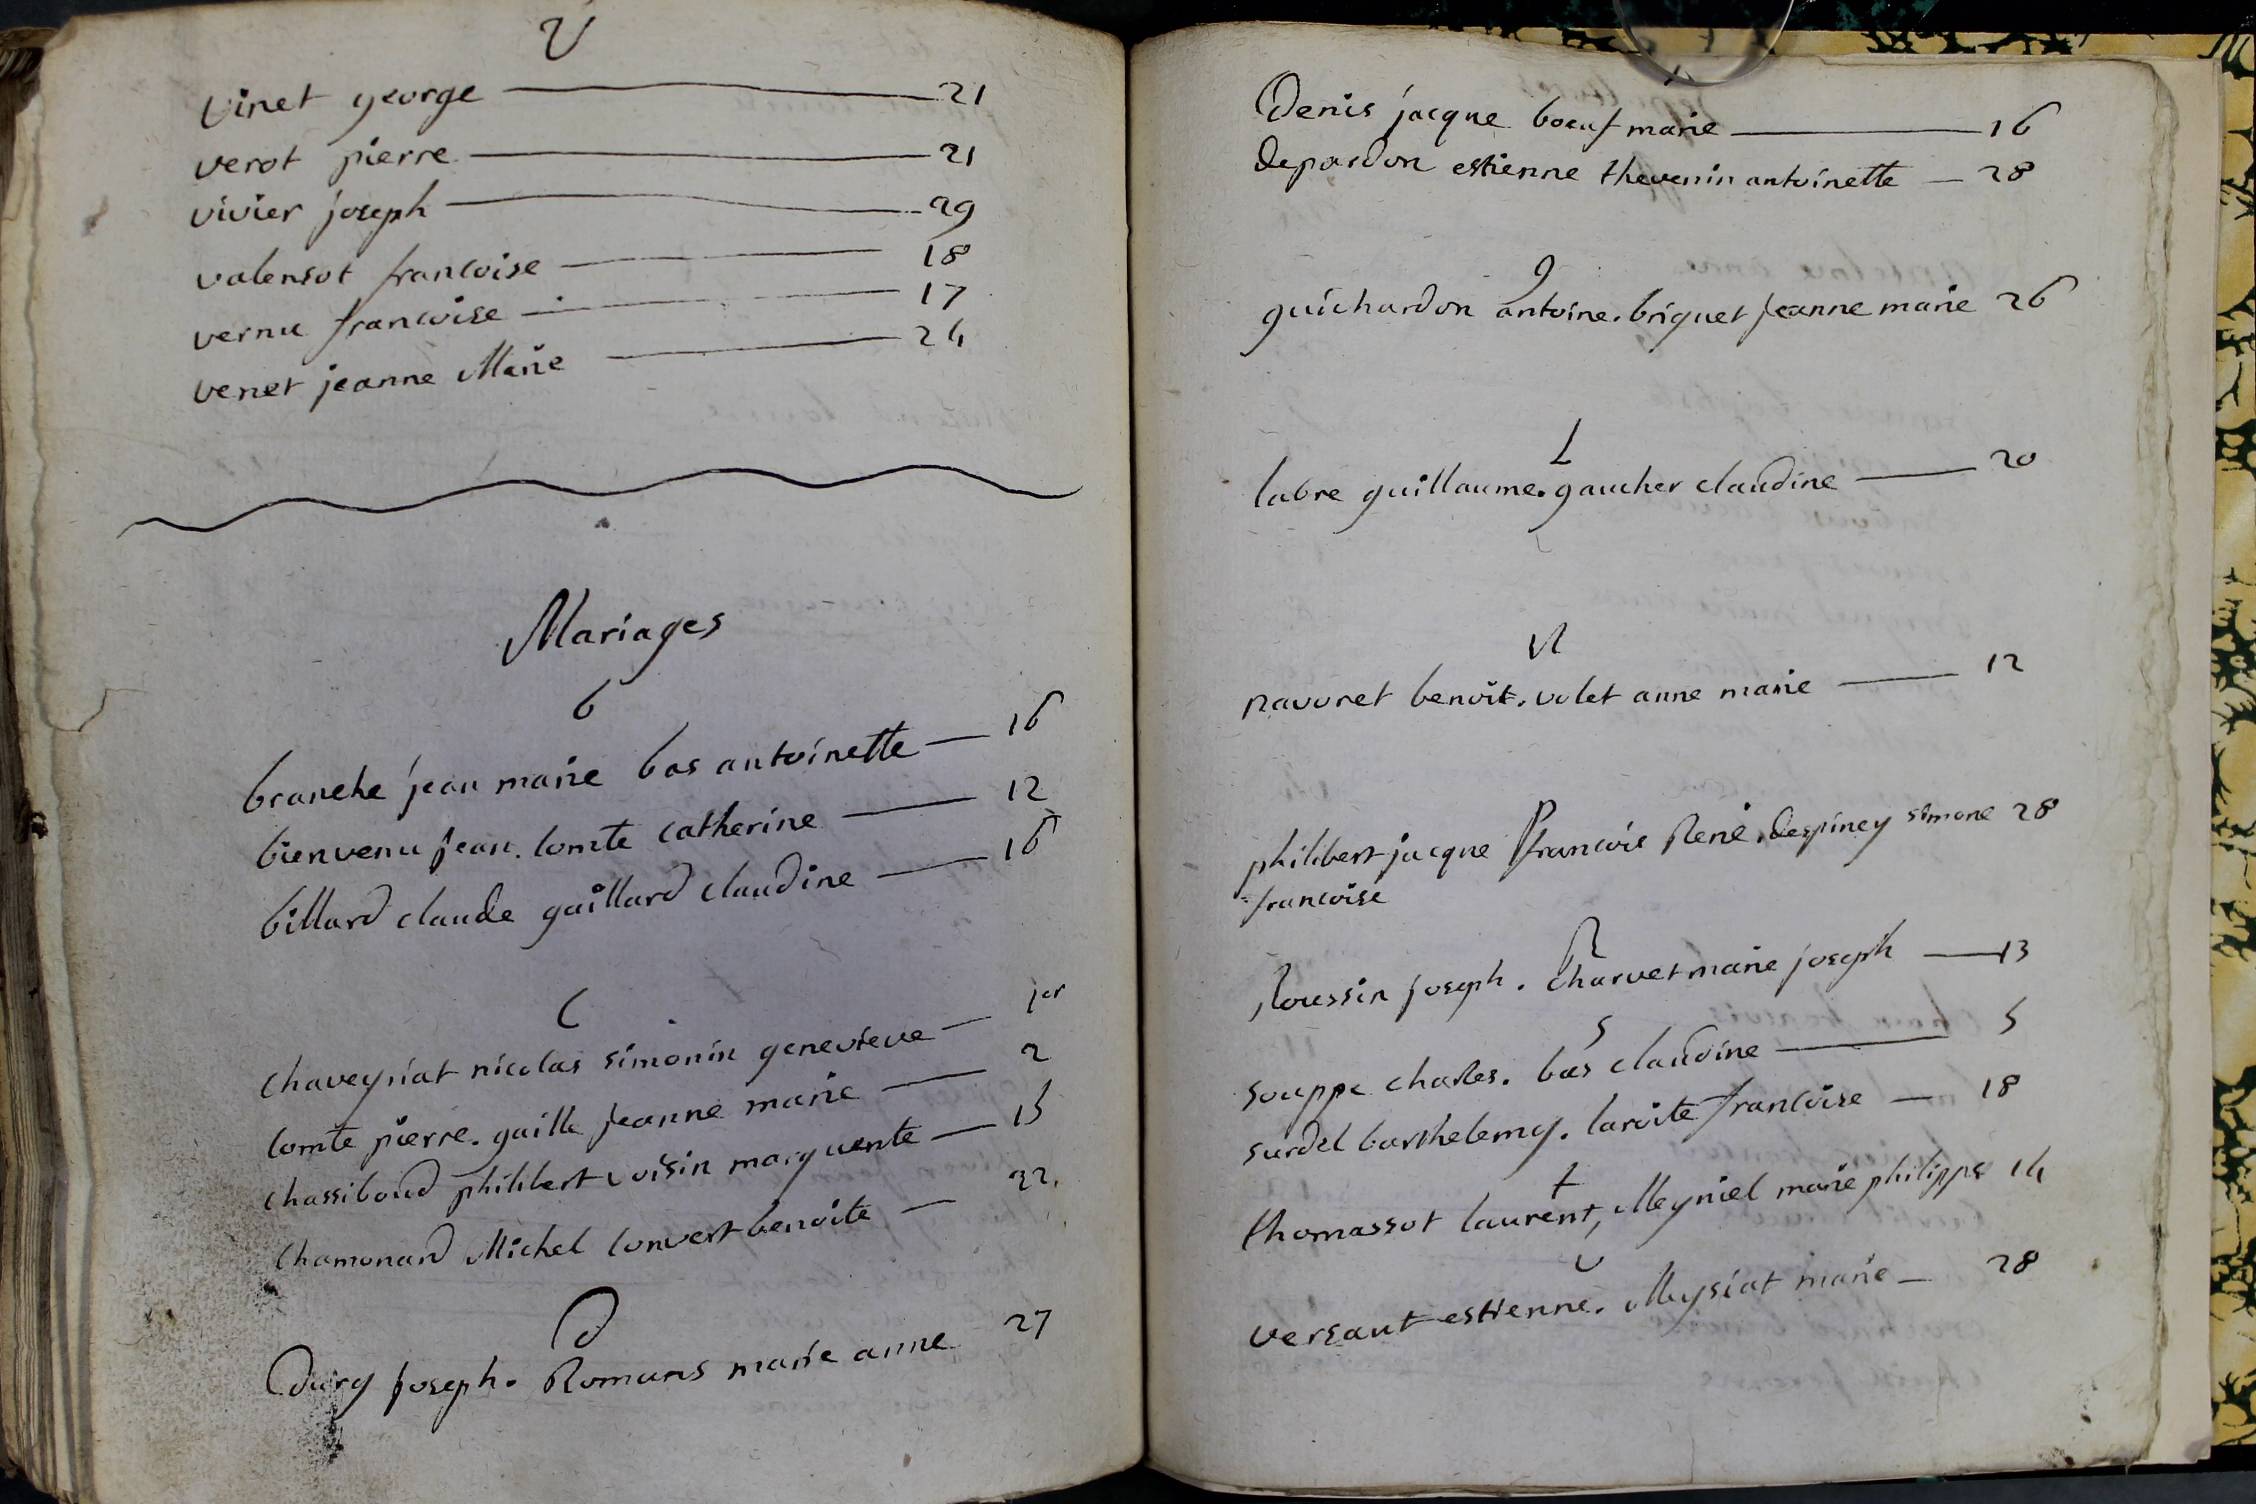 V
vinet george 21
verot pierre 21
vivier joseph 29
valensot francoise 18
vernu francoise 17
venet jeanne Marie 24
Mariages
b
branche jean marie bas antoinette 16
bienvenu jean. comte catherine 12
billard claude gaillard claudine 16
C
chaveyriat nicolas simonin genevieve 1er
comte pierre. gaille jeanne marie 2
chassiboud philibert voisin marguerite 15
chamonard Michel convert benoite 22.
D
Dury joseph. Romans marie anne 27
Denis jacque boeuf marie 16
depardon estienne thevenin antoinette 28
g
guichardon antoine. briquet jeanne marie 26
L
labre guillaume. gaucher claudine 20
N
navoret benoit. volet anne marie 12
P
philibert jacque francois René. despiney simone 28
francoise
R
Roussin joseph. Charvet marie joseph 13
S
souppe charles. bas claudine 5
surdel barthelemy. laroite francoise 18
t
thomassot laurent, Meyniel marie philippe 14
v
versaut estienne. Meysiat marie 28